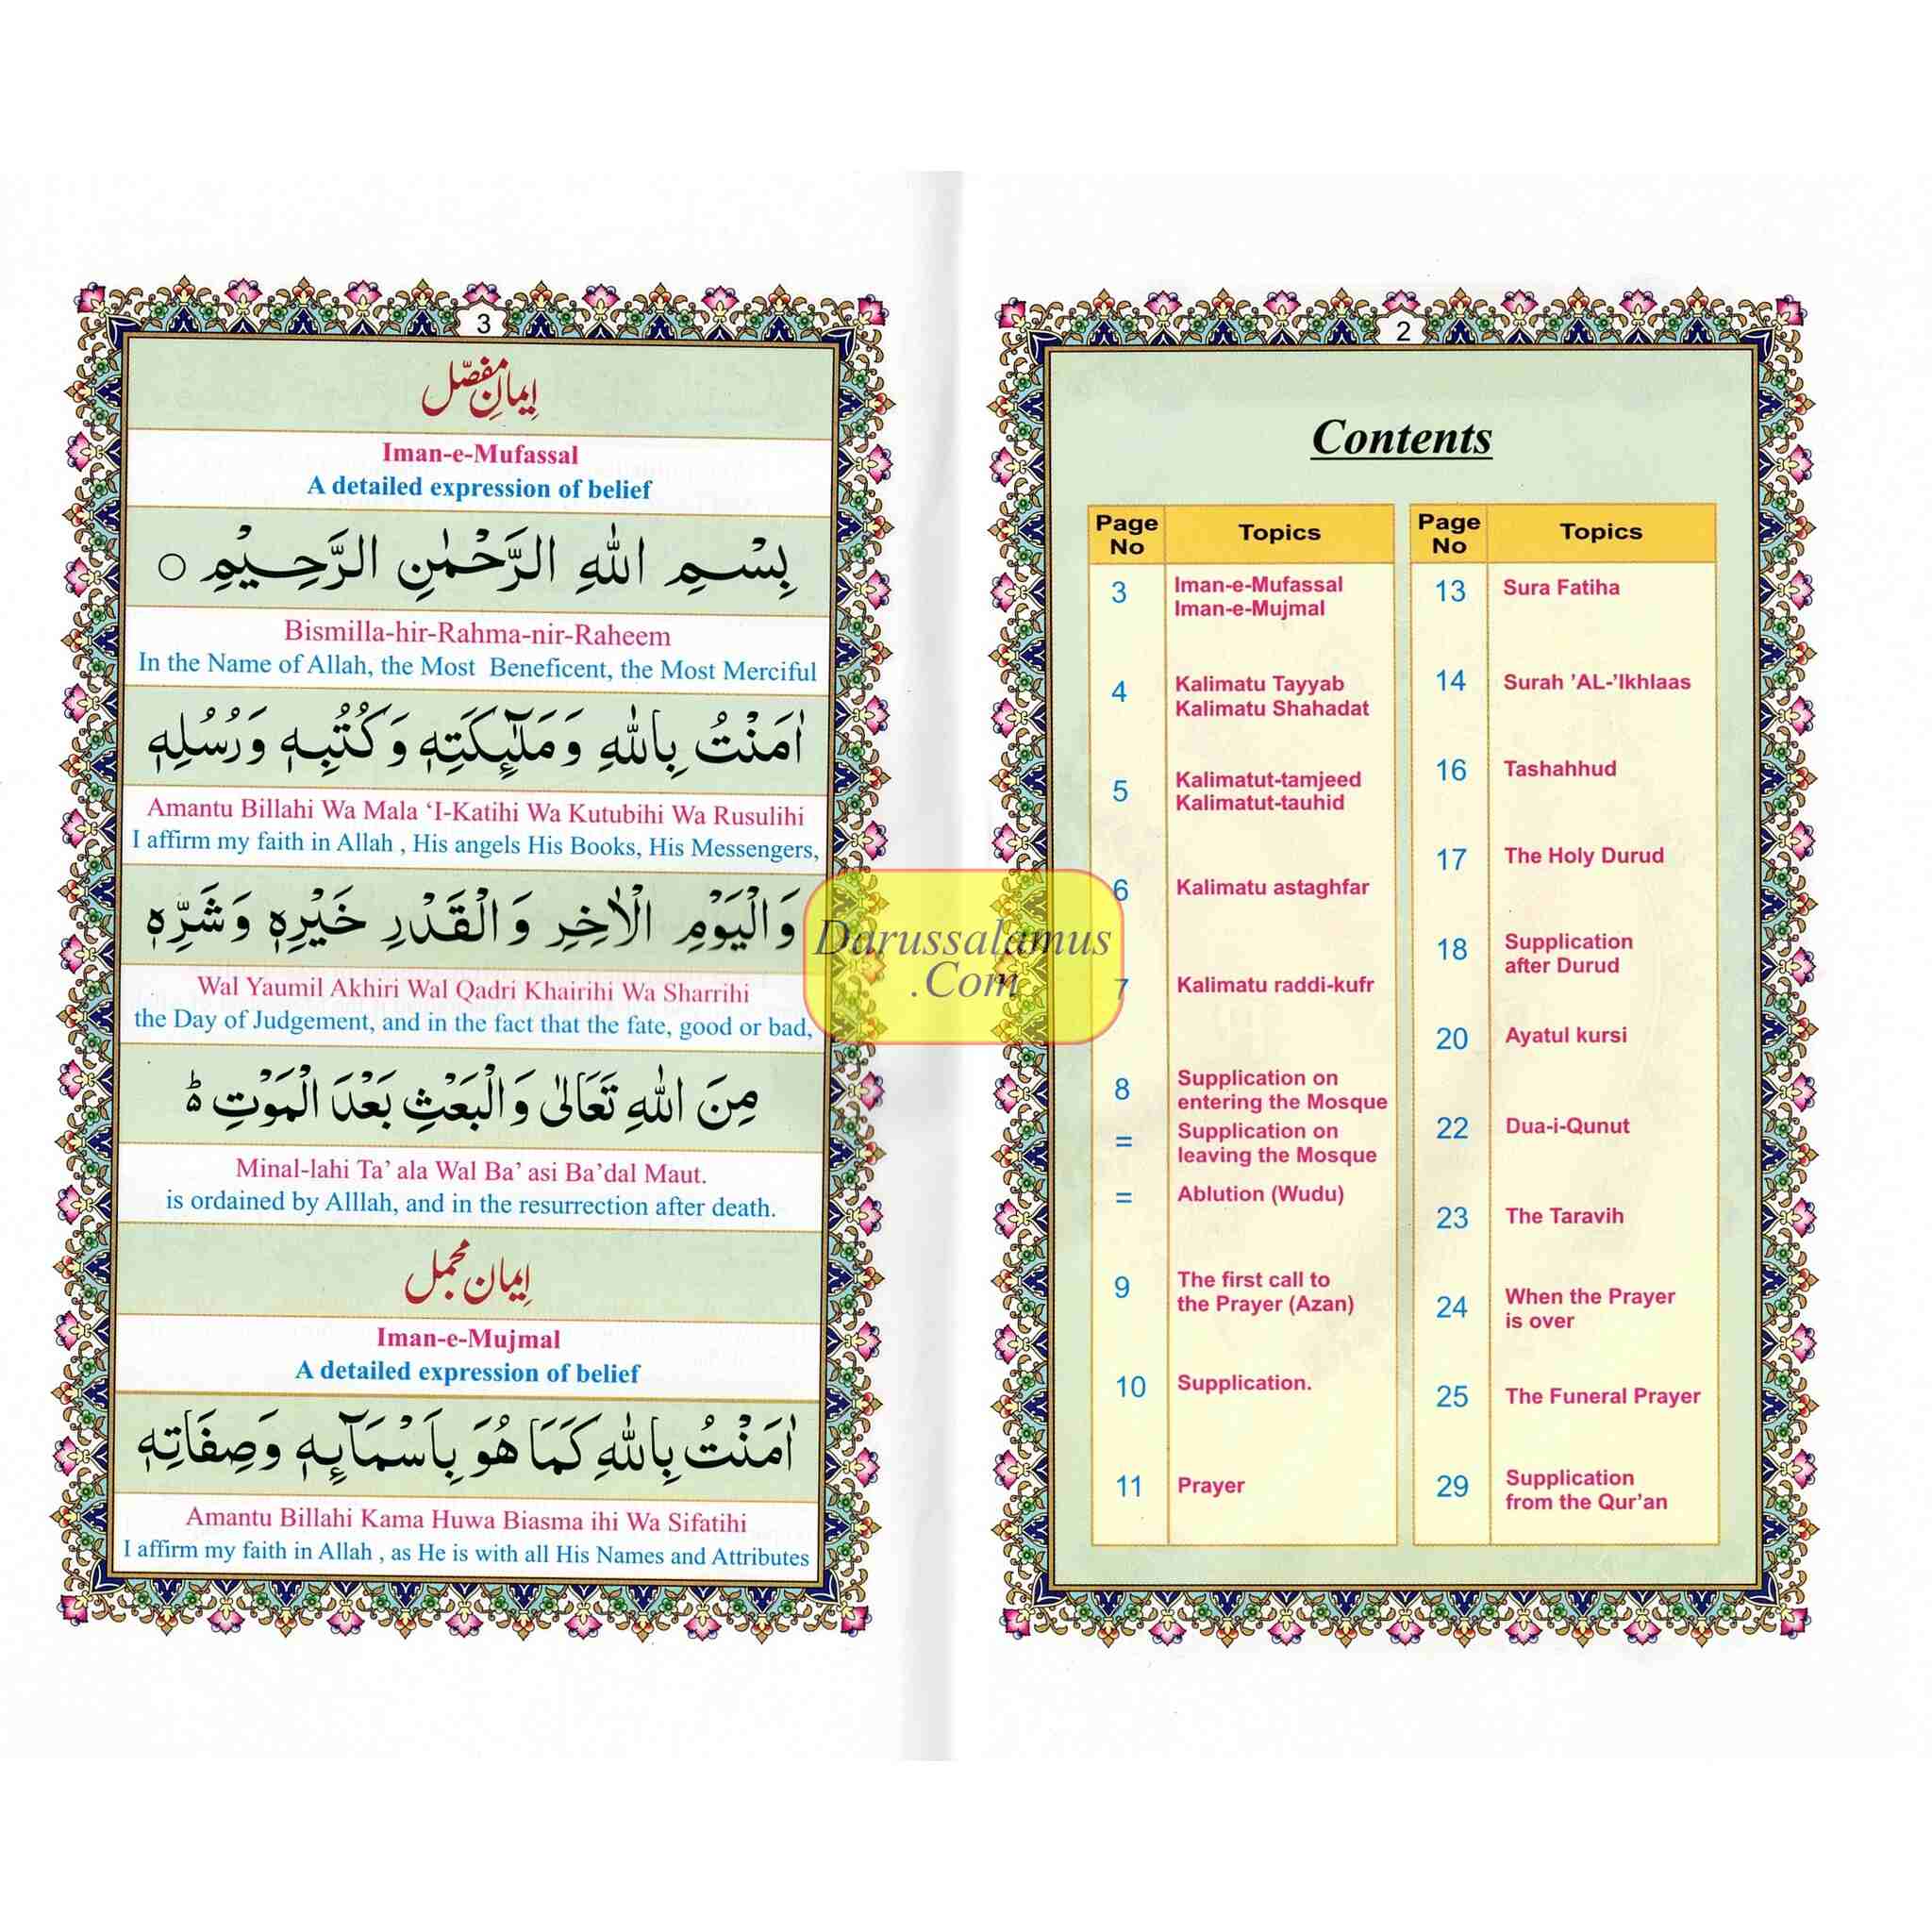 3
اِیمانِ مفصّل
Iman-e-Mufassal
A detailed expression of belief
بِسْمِ اللهِ الرَّحْمٰنِ الرَّحِيْمِ ○
Bismilla-hir-Rahma-nir-Raheem
In the Name of Allah, the Most Beneficent, the Most Merciful
اٰمَنْتُ بِاللهِ وَمَلٰٓئِكَتِهٖ وَكُتُبِهٖ وَرُسُلِهٖ
Amantu Billahi Wa Mala ‘I-Katihi Wa Kutubihi Wa Rusulihi
I affirm my faith in Allah , His angels His Books, His Messengers,
وَالْيَوْمِ الْاٰخِرِ وَالْقَدْرِ خَيْرِهٖ وَشَرِّهٖ
Wal Yaumil Akhiri Wal Qadri Khairihi Wa Sharrihi
the Day of Judgement, and in the fact that the fate, good or bad,
مِنَ اللهِ تَعَالٰى وَالْبَعْثِ بَعْدَ الْمَوْتِ ؕ
Minal-lahi Ta’ ala Wal Ba’ asi Ba’dal Maut.
is ordained by Alllah, and in the resurrection after death.
اِیمان مجمل
Iman-e-Mujmal
A detailed expression of belief
اٰمَنْتُ بِاللهِ كَمَا هُوَ بِاَسْمَآئِهٖ وَصِفَاتِهٖ
Amantu Billahi Kama Huwa Biasma ihi Wa Sifatihi
I affirm my faith in Allah , as He is with all His Names and Attributes
Darussalamus
.Com
2
Contents
Page No Topics
3 Iman-e-Mufassal
Iman-e-Mujmal
4 Kalimatu Tayyab
Kalimatu Shahadat
5 Kalimatut-tamjeed
Kalimatut-tauhid
6 Kalimatu astaghfar
7 Kalimatu raddi-kufr
8 Supplication on
entering the Mosque
= Supplication on
leaving the Mosque
= Ablution (Wudu)
9 The first call to
the Prayer (Azan)
10 Supplication.
11 Prayer
Page No Topics
13 Sura Fatiha
14 Surah ’AL-’Ikhlaas
16 Tashahhud
17 The Holy Durud
18 Supplication
after Durud
20 Ayatul kursi
22 Dua-i-Qunut
23 The Taravih
24 When the Prayer
is over
25 The Funeral Prayer
29 Supplication
from the Qur’an